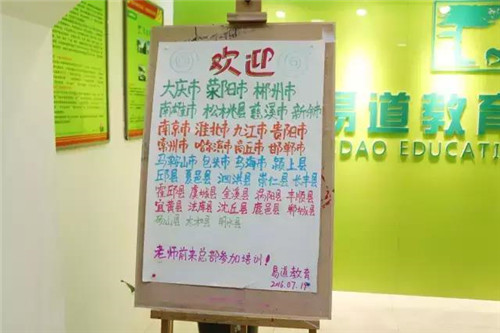 欢迎
大庆市 荥阳市 郴州市
南雄市 松桃县 慈溪市 新沂市
南京市 淮北市 九江市 贵阳市
常州市 哈尔滨市 商丘市 邯郸市
马鞍山市 包头市 乌海市 颍上县
丘县 夏邑县 泗洪县 崇仁县 长丰县
霍邱县 虞城县 金溪县 涡阳县 丰顺县
宜黄县 法库县 沈丘县 鹿邑县 郸城县
砀山县 太和县 明水县
老师前来总部参加培训!
易道教育
2016.07.19
易道教育
DAO EDUCATI